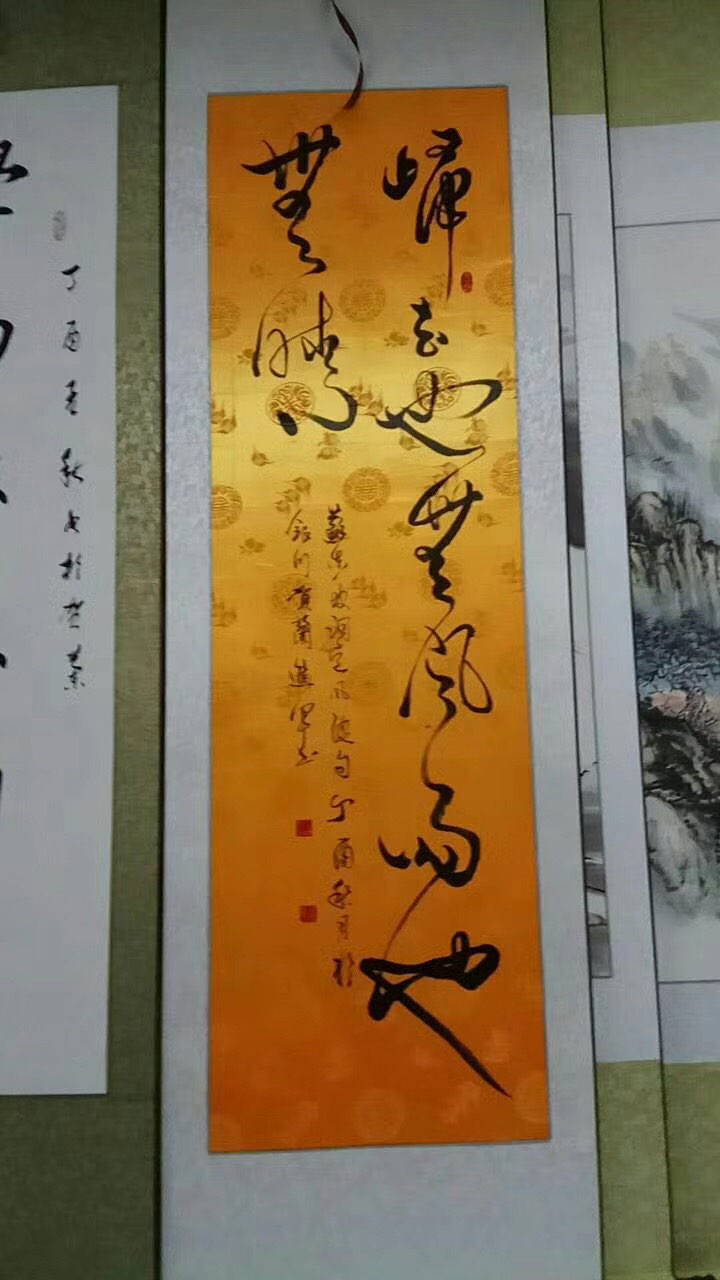 歸去也無風雨也
無晴
蘇東坡詞定風波句丁酉秋月於
銀川賀蘭
丁酉秋於